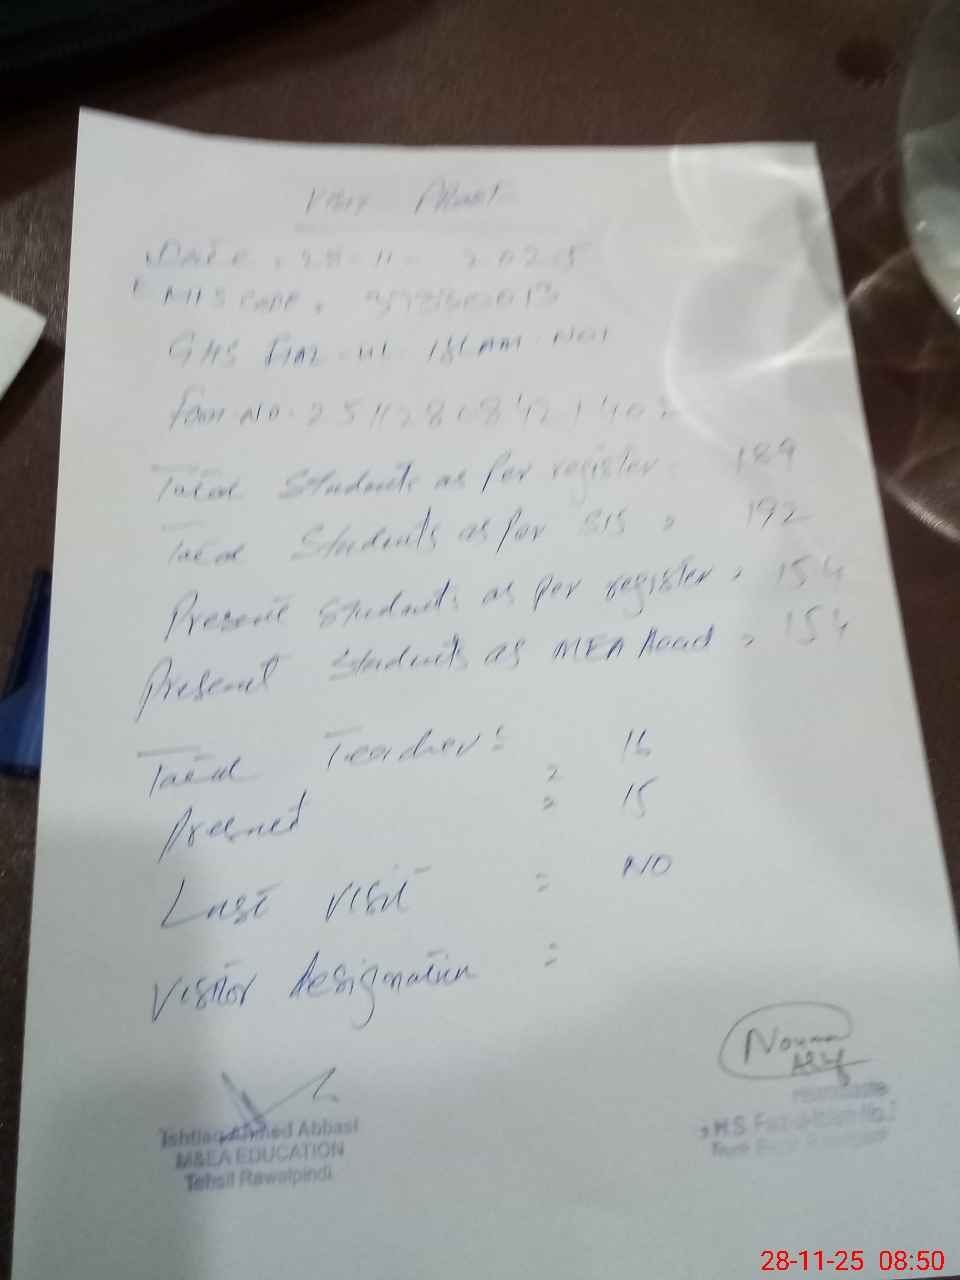 Date : 28-11-2025
EMIS Code : 37360013
GHS FIAZ-UL-ISLAM NO1
Total Students as per register 189
Total Students as per SIS : 192
Present Students as per register : 154
Present Students as MEA Head : 154
Total Teachers : 16
Presnet : 15
Last visit : NO
Visitor designation :
Nouman
Ishtiaq Ahmed Abbasi
M&EA EDUCATION
Tehsil Rawalpindi
28-11-25 08:50